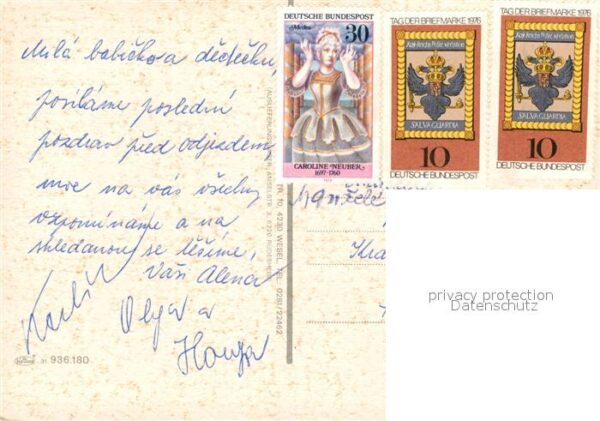 Milá babičko a dědečku,
posíláme poslední
pozdrav před odjezdem,
moc na vás všichni
vzpomínáme a na
shledanou se těšíme,
Vaši Alena
Olga a
Honza
936.180
DEUTSCHE BUNDESPOST
30
Medea
CAROLINE NEUBER
1697-1760
TAG DER BRIEFMARKE 1976
SALVA GUARDIA
10
DEUTSCHE BUNDESPOST
TAG DER BRIEFMARKE 1976
SALVA GUARDIA
10
DEUTSCHE BUNDESPOST
Manželé
Kra
4230 WESEL, TEL. 0281/22462
privacy protection
Datenschutz